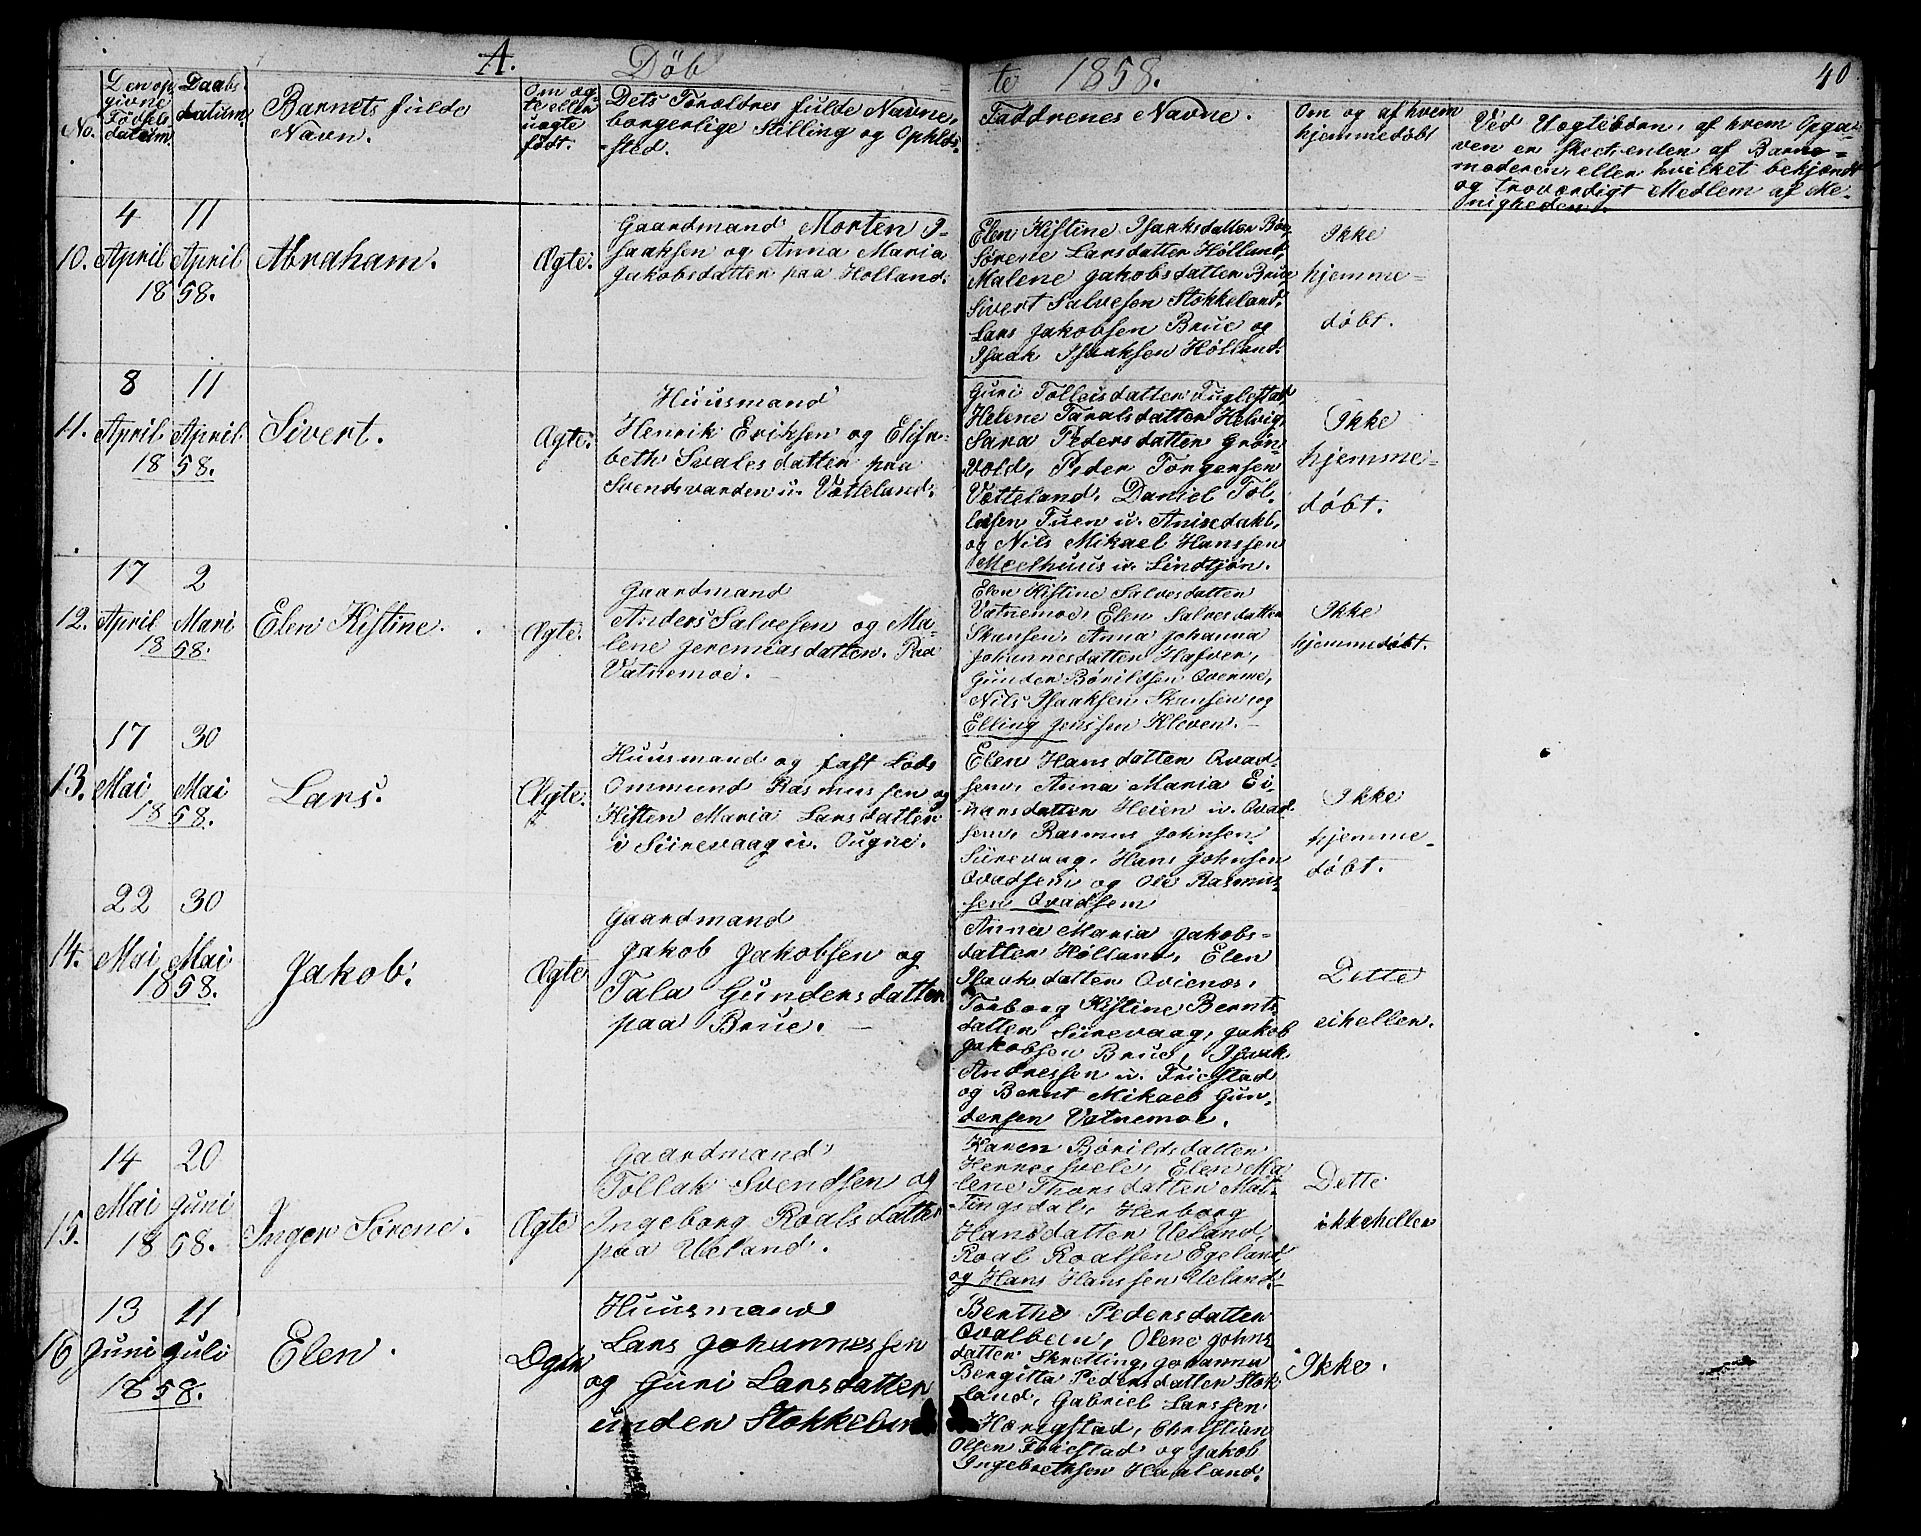 A.
Döbte 1858.
40
No.
Den op
givne
Födsels
datum.
Daabs
datum.
Barnets fulde
Navn.
Om æg
te eller
uægte
födt.
Dets Forældres fulde Navne,
borgerlige Stilling og Opholds
sted.
Faddrenes Navne.
Om og af hvem
hjemmedöbt
Ved Uægtebörn, af hvem Opga-
ven er skeet, enten af Barne-
moderen, eller hvilket bekjendt
og troværdigt Medlem af Me-
nigheden.
10.
4 April 1858.
11 April
Abraham.
Ægte.
Gaardmand Morten I-
saaksen og Anna Maria
Jakobsdatter paa Hölland.
Elen Kistine Isaaksdatter
Sörene Larsdatter Hölland,
Malene Jakobsdatter Brue
Sivert Salvesen Stokkeland,
Lars Jakobsen Brue og
Isaak Isaaksen Hölland.
Ikke
hjemme-
döbt.
11.
8 April 1858.
11 April
Sivert.
Ægte.
Huusmand
Henrik Eriksen og Elisa-
beth Svalesdatter paa
Svendsvarden u. Vætteland.
Guri Tolleisdatter Fuglestad
Helene Taralsdatter Helvig,
Sara Pedersdatter Grön-
vold, Peder Torgersen
Vætteland, Daniel Tol-
leisen Tuen u. Anisdahl,
og Nils Mikael Hanssen
Meelhuus u. Lindtjön.
Ikke
hjemme-
döbt.
12.
17 April 1858.
2 Mai
Elen Kistine.
Ægte.
Gaardmand
Anders Salvesen og Ma-
lene Jeremiasdatter. Paa
Vatnemoe.
Elen Kistine Salvesdatter
Vatnemoe, Elen Salvesdatter
Skansen, Anna Johanna
Johannesdatter Hafver,
Gunder Börildsen Qverme,
Nils Isaaksen Skansen og
Elling Jenssen Kleven.
Ikke
hjemmedöbt.
13.
17 Mai 1858.
30 Mai
Lars.
Ægte.
Huusmand og fast Lods
Ommund Rasmussen og
Kisten Maria Larsdatter
i Siirevaag u. Ougne.
Elen Hansdatter Qvad-
sem, Anna Maria Ei-
narsdatter Heien u. Qvad-
sem, Rasmus Johnsen
Siirevaag, Hans Johnsen
Qvadsem og Ole Rasmus-
sen Qvadsem
Ikke
hjemme-
döbt.
14.
22 Mai 1858.
30 Mai
Jakob.
Ægte
Gaardmand
Jakob Jakobsen og
Tala Gundersdatter
paa Brue.
Anna Maria Jakobs-
datter Hölland, Elen
Isaaksdatter Qvienæs,
Torborg Kistine Bernts-
datter Siirevaag, Jakob
Jakobsen Brue, Isaak
Andressen u. Friestad
og Bernt Mikael Gun-
dersen Vatnemoe.
Dette
eiheller.
15.
14 Mai 1858.
20 Juni
Inger Sörene.
Ægte
Gaardmand
Tollak Svendsen og
Ingeborg Roalsdatter
paa Ueland.
Karen Börildsdatter
Hernessvele, Elen Ma-
lene Thorsdatter Mat-
tingsdal, Herborg
Hansdatter Ueland,
Roal Roalsen Egeland
og Hans Hanssen Ueland.
Dette
ikkeheller
16
13 Juni 1858.
11 Juli
Elen.
Huusmand
Lars Johannessen
og Guri Larsdatter
under Stokkeland
Berthe Pedersdatter
Qvalbein, Olene Johns-
datter Skretting, Johanna
Bergitta Pedersdatter Stok-
land, Gabriel Larssen
Hærigstad, Christian
Olsen Friestad og Jakob
Ingebretsen Haaland.
Ikke.